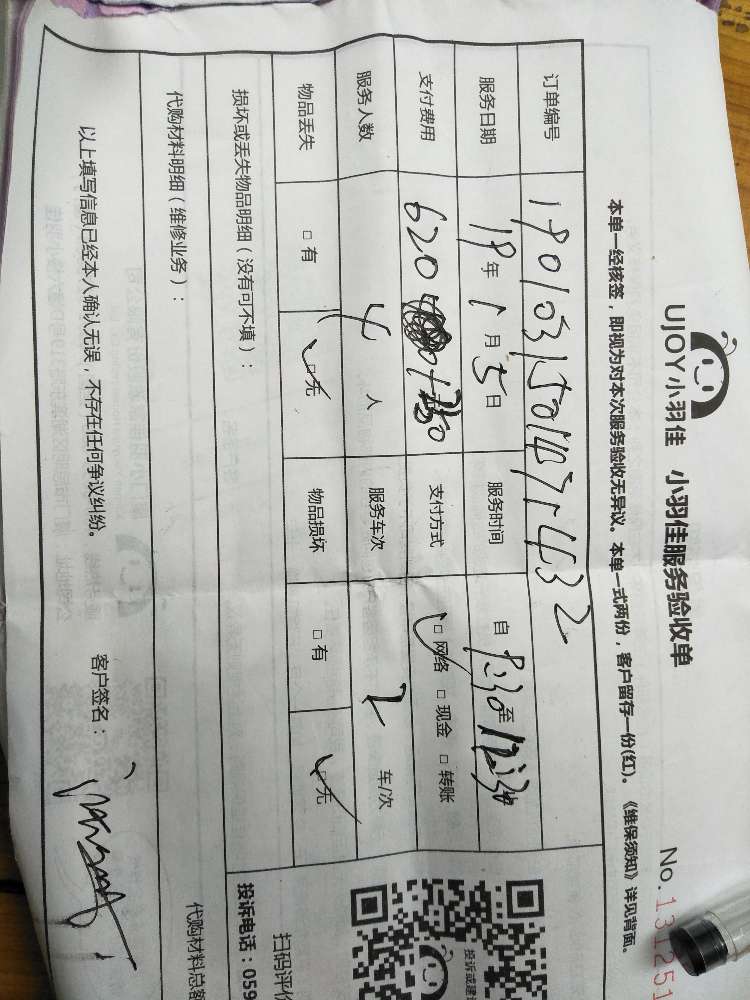 UJOY小羽佳 小羽佳服务验收单
No.131251
本单一经核签，即视为对本次服务验收无异议。本单一式两份，客户留存一份(红)。《维保须知》详见背面。
订单编号
服务日期 19年1月5日 服务时间 自 至
支付费用 620 支付方式 □网络 □现金 □转账
服务人数 4人 服务车次 2 车/次
物品丢失 □有 □无 物品损坏 □有 □无
损坏或丢失物品明细（没有可不填）：
代购材料明细（维修业务）： 代购材料总
以上填写信息已经本人确认无误，不存在任何争议纠纷。 客户签名：
投诉或建
扫码评价
投诉电话：059